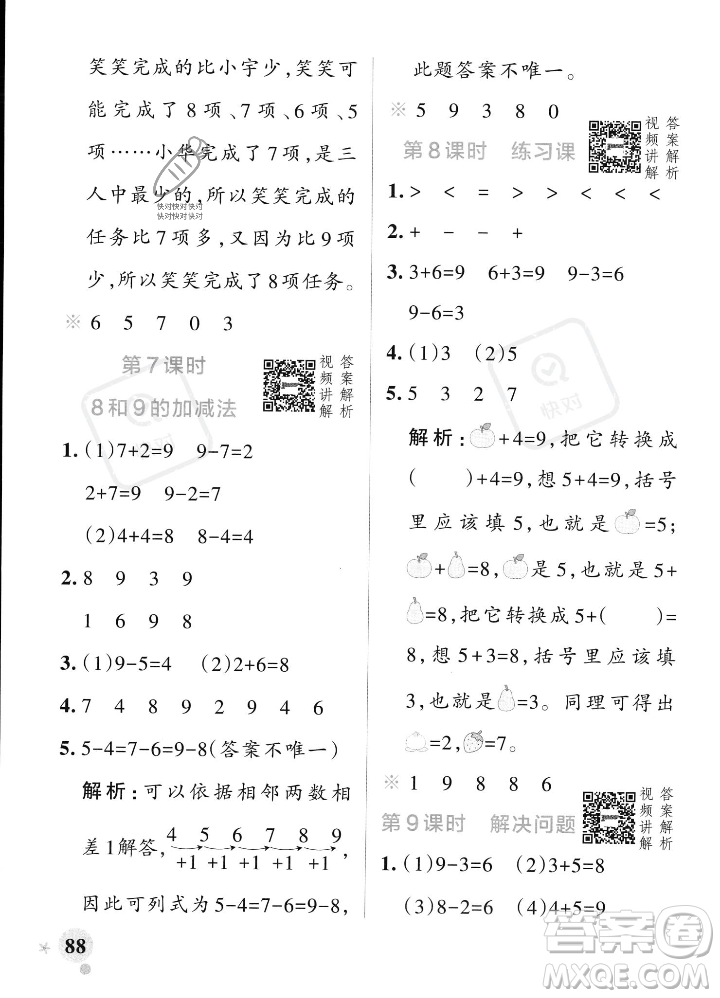 笑笑完成的比小宇少,笑笑可
能完成了8项、7项、6项、5
项……小华完成了7项,是三
人中最少的,所以笑笑完成的
任务比7项多,又因为比9项
少,所以笑笑完成了8项任务。
※ 6 5 7 0 3
第7课时
8和9的加减法
视频讲解
答案解析
1. (1)7+2=9 9-7=2
2+7=9 9-2=7
(2)4+4=8 8-4=4
2. 8 9 3 9
1 6 9 8
3. (1)9-5=4 (2)2+6=8
4. 7 4 8 9 2 9 4 6
5. 5-4=7-6=9-8(答案不唯一)
解析:可以依据相邻两数相
差1解答, 4 5 6 7 8 9
+1 +1 +1 +1 +1
因此可列式为5-4=7-6=9-8,
88
此题答案不唯一。
※ 5 9 3 8 0
第8课时 练习课
视频讲解
答案解析
1. > < = > > < < <
2. + - - +
3. 3+6=9 6+3=9 9-3=6
9-6=3
4. (1)3 (2)5
5. 5 3 2 7
解析: +4=9,把它转换成
( )+4=9,想5+4=9,括号
里应该填5,也就是 =5;
+ =8, 是5,也就是5+
=8,把它转换成5+( )
=8,想5+3=8,括号里应该填
3,也就是 =3。同理可得出
=2, =7。
※ 1 9 8 8 6
第9课时 解决问题
视频讲解
答案解析
1. (1)9-3=6 (2)3+5=8
(3)8-2=6 (4)9-6=3
快对快对快对
快对快对快对
快对
快对
答案圈
MXQE.COM